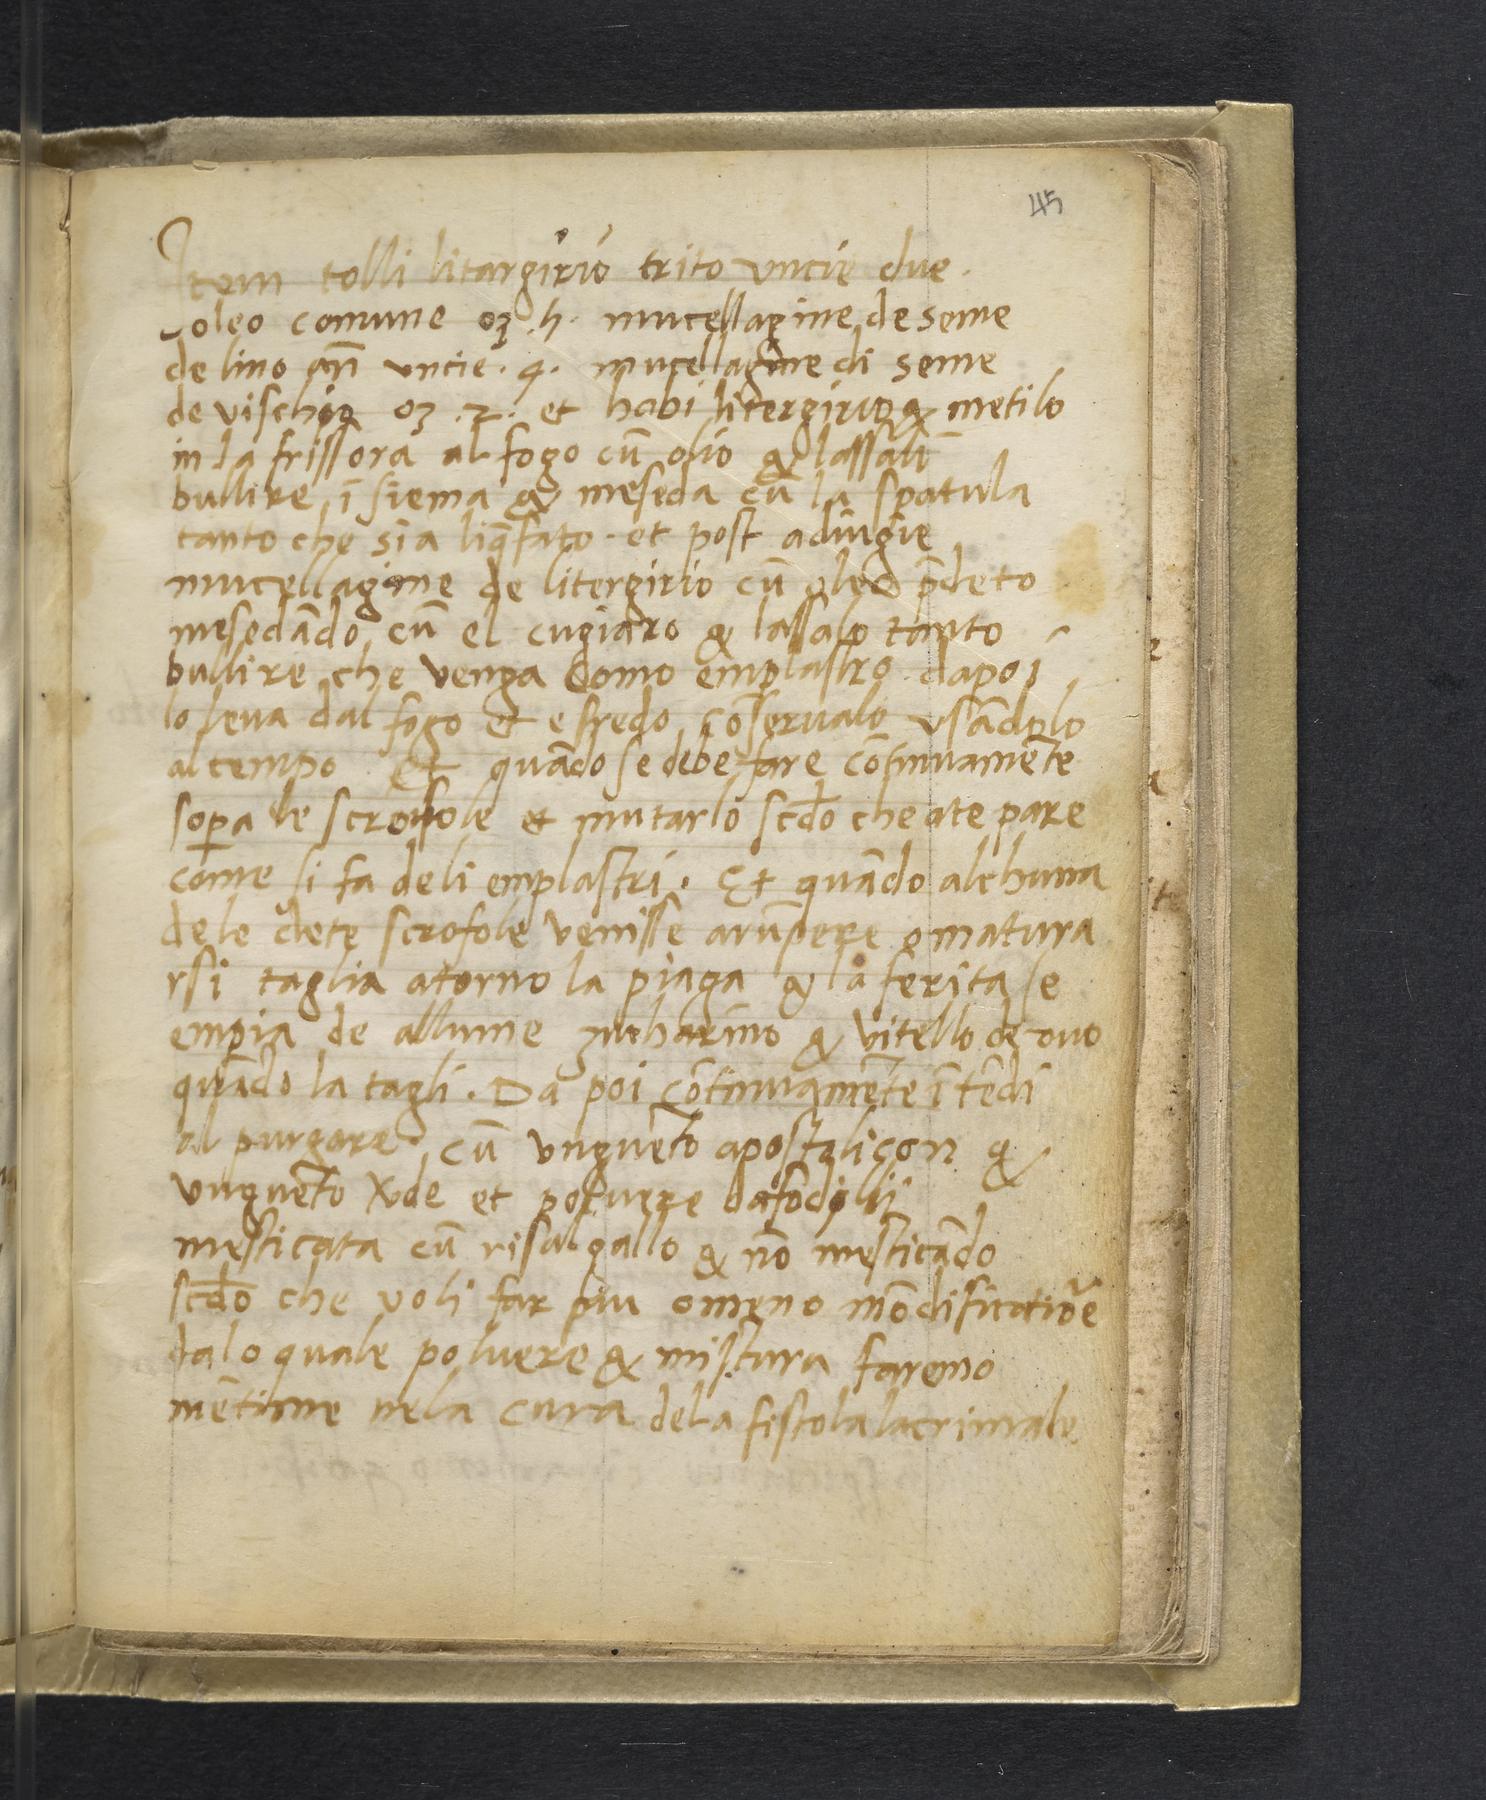 45
Item tolli litargirio trito uncie due.
oleo comune oz .h. mucellagine de seme
de lino añ uncie .4. mucellagine di seme
de vischio oz .2. et habi litergirio & metilo
in la frissora al fogo cū olio & lassali
bullire ī siema & meseda cū la spatula
tanto che sia liq̄fato. et post adiugie
mucellagine de litergirio cū oleo p̄deto
mesedādo cū el cugiaro & lassalo tanto
bullire che venga como emplastro dapoi
lo leua dal fogo et e fredo cōserualo usādolo
al tempo Et quādo se debe fare cōtinuamēte
sopra le scroffole et mutarlo scđo che ate pare
come si fa deli emplastri. Et quādo alchuna
de le dete scrofole venisse arūpere o matura
rsi taglia atorno la piaga & la ferita se
empia de allume zucharino & vitello de ouo
quādo la tagli. Da poi cōtinuamēte ītēdi
al purgare. cū unguēto apostolicon &
unguēto v̄de et poluere dafodilli
mesticata cū risalgallo & nō mesticādo
scđo che voli far piu o meno mōdificatiōe
dalo quale poluere & mistura faremo
mētione nela cura dela fistola lacrimale